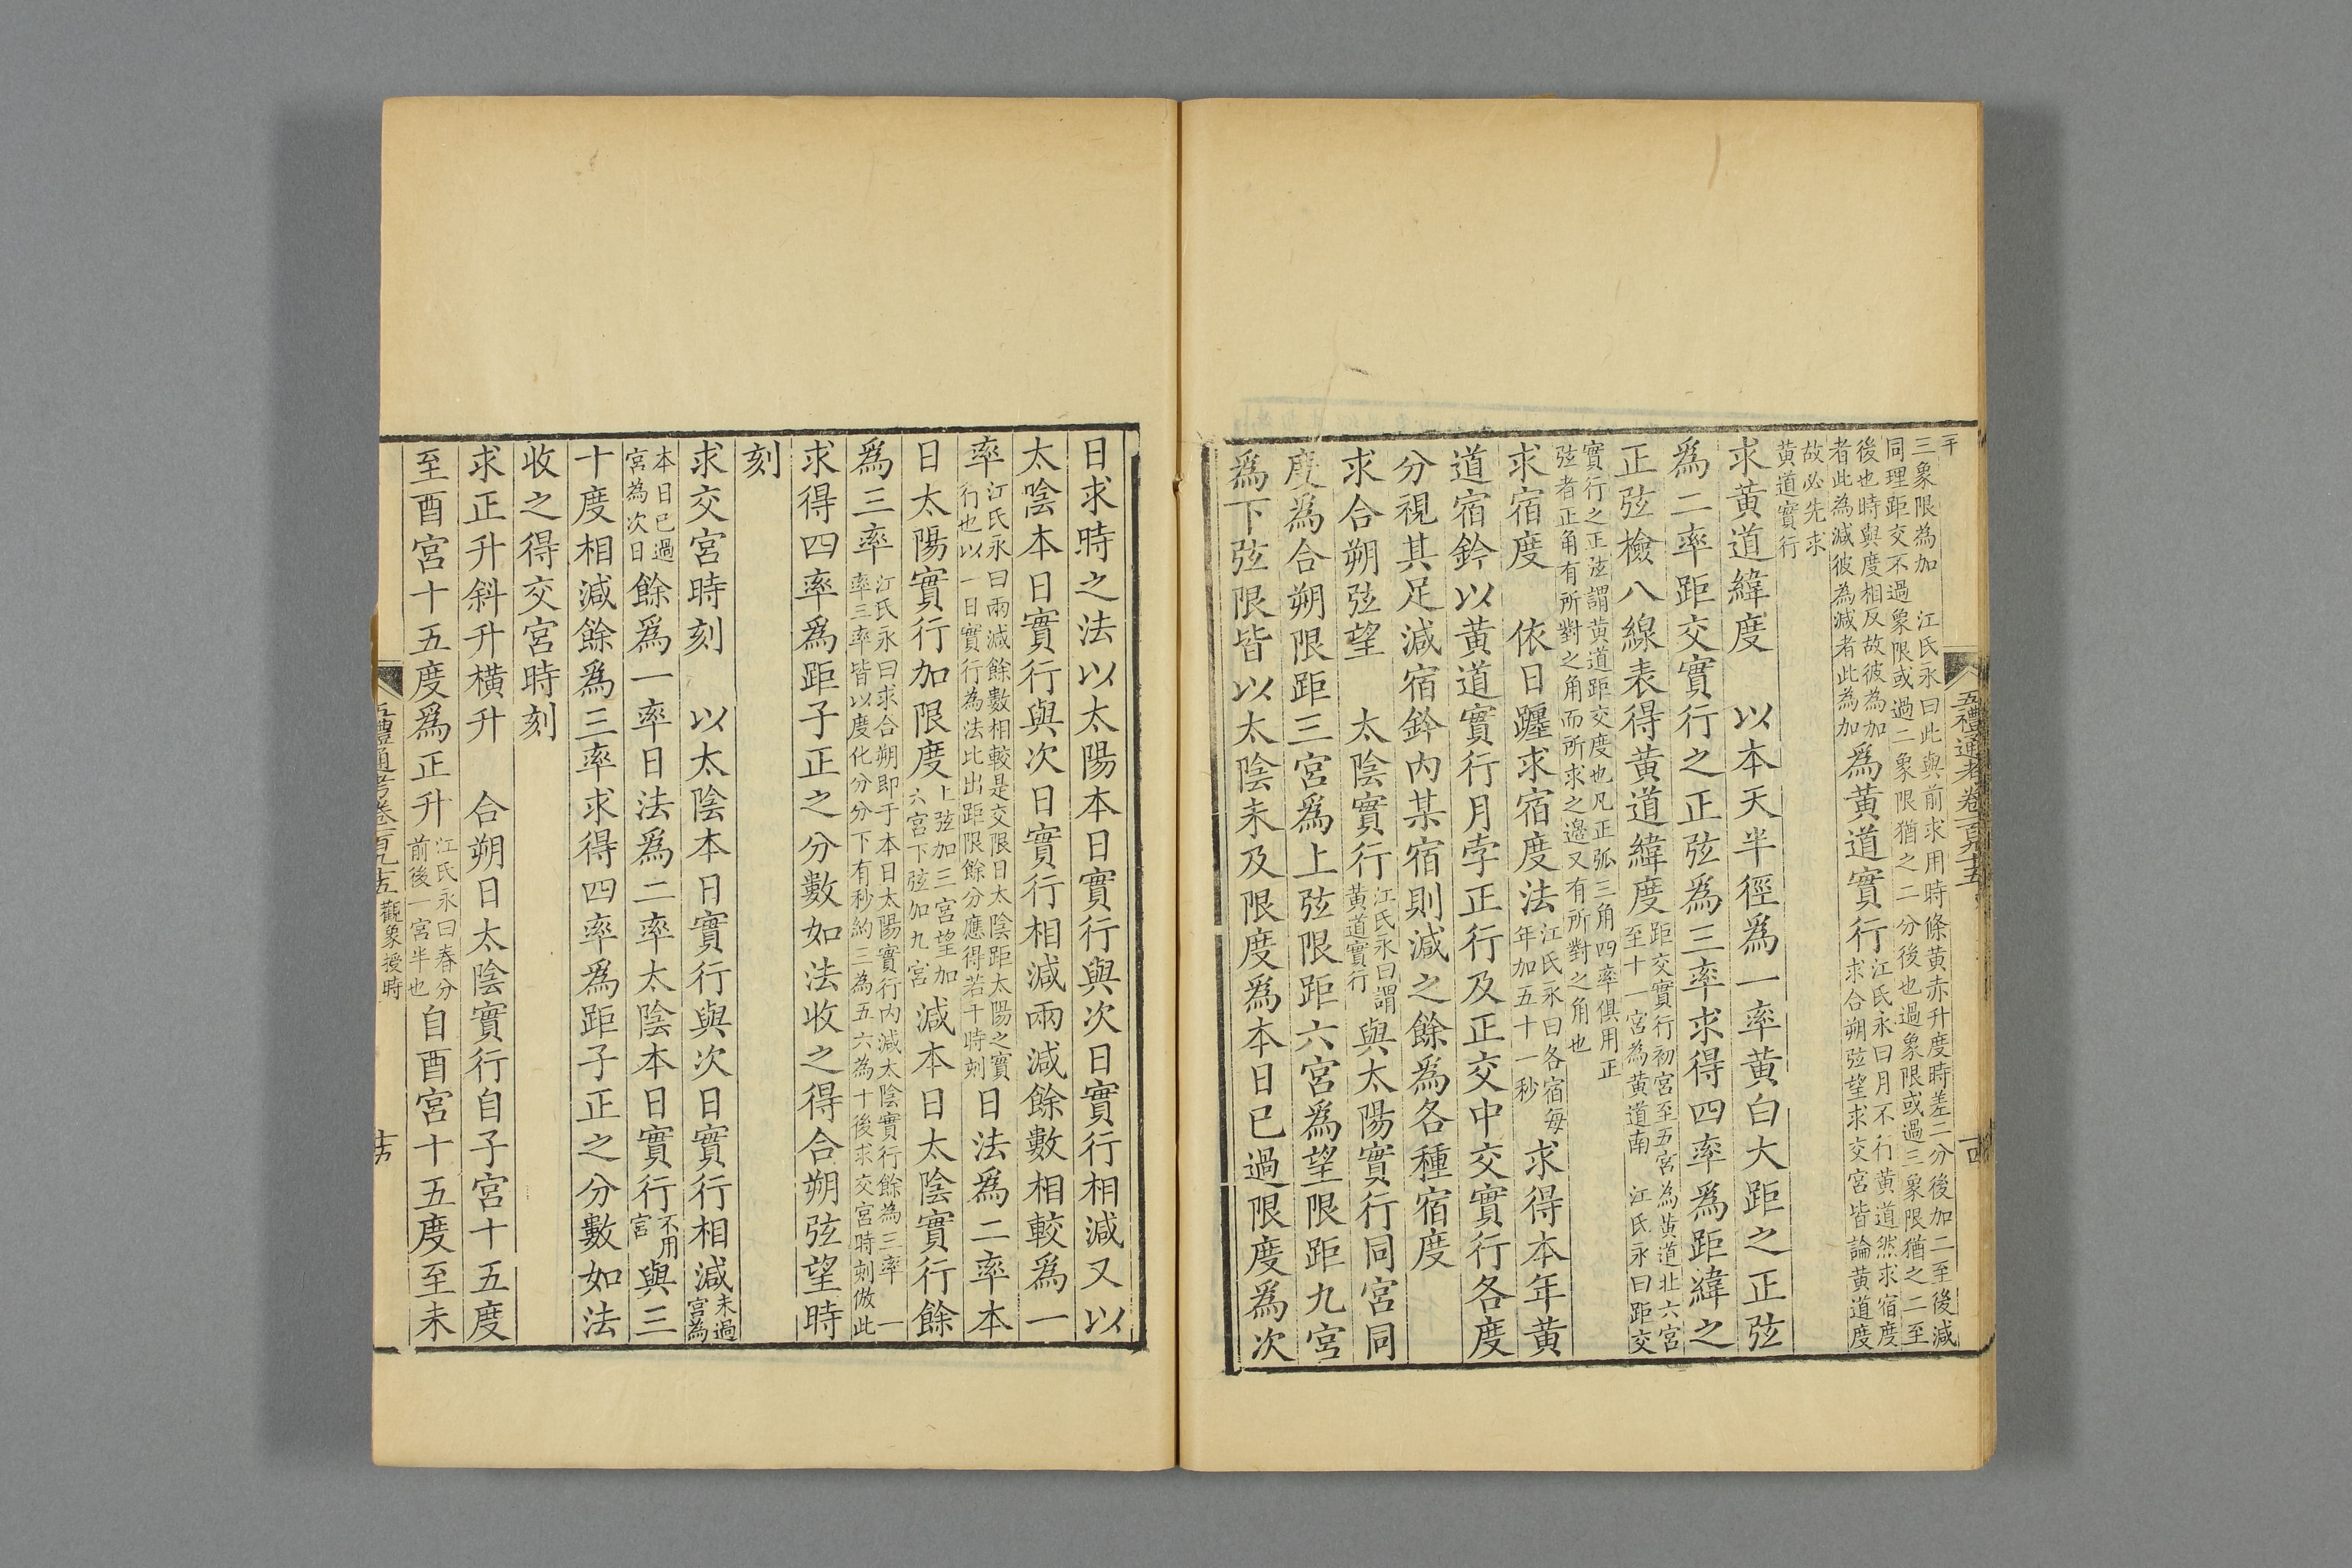 五禮通考卷一百九十五
十四
三象限為加　江氏永曰此與前求用時條黃赤升度時差二分後加二至後減
同理距交不過象限或過二象限猶之二分後也過象限或過三象限猶之二至
後也時與度相反故彼為加者此為減彼為減者此為加爲黃道實行江氏永曰月不行黃道然求宿度求合朔弦望求交宮皆論黃道度
故必先求黃道實行
求黃道緯度　以本天半徑爲一率黃白大距之正弦
爲二率距交實行之正弦爲三率求得四率爲距緯之
正弦檢八線表得黃道緯度距交實行初宮至五宮為黃道北六宮至十一宮為黃道南　江氏永曰距交
實行之正弦謂黃道距交度也凡正弧三角四率俱用正弦者正角有所對之角而所求之邉又有所對之角也
求宿度　依日躔求宿度法江氏永曰各宿每年加五十一秒求得本年黃
道宿鈐以黃道實行月孛正行及正交中交實行各度
分視其足減宿鈐内某宿則減之餘爲各種宿度
求合朔弦望　太陰實行江氏永曰謂黃道實行與太陽實行同宮同
度爲合朔限距三宮爲上弦限距六宮爲望限距九宮
爲下弦限皆以太陰未及限度爲本日已過限度爲次
日求時之法以太陽本日實行與次日實行相減又以
太陰本日實行與次日實行相減兩減餘數相較爲一
率江氏永曰兩減餘數相較是交限日太陰距太陽之實行也以一日實行為法比出距限餘分應得若干時刻日法爲二率本
日太陽實行加限度上弦加三宮望加六宮下弦加九宮減本日太陰實行餘
爲三率江氏永曰求合朔即于本日太陽實行内減太陰實行餘為三率一率三率皆以度化分分下有秒約三為五六為十後求交宮時刻倣此
求得四率爲距子正之分數如法收之得合朔弦望時
刻
求交宮時刻　以太陰本日實行與次日實行相減未過宮為
本日已過宮為次日餘爲一率日法爲二率太陰本日實行不用宮與三
十度相減餘爲三率求得四率爲距子正之分數如法
收之得交宮時刻
求正升斜升橫升　合朔日太陰實行自子宮十五度
至酉宮十五度爲正升江氏永曰春分前後一宮半也自酉宮十五度至未
五禮通考卷一百九十五　觀象授時